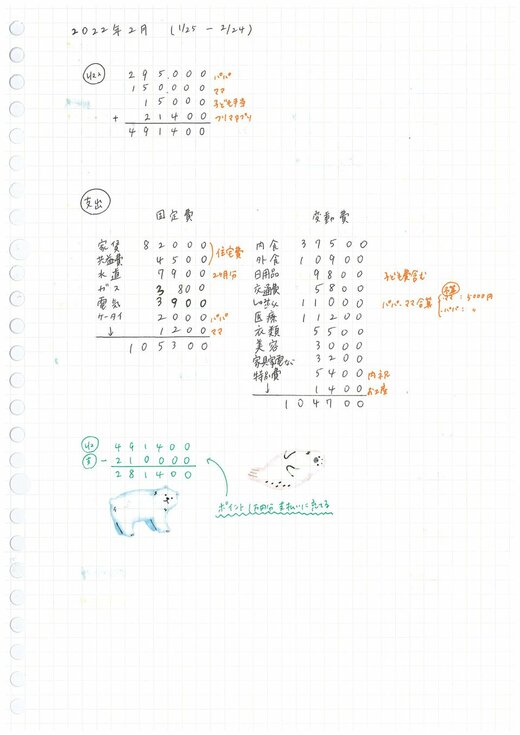 2022年2月 (1/25 - 2/24)
295.000 パパ
150.000 ママ
15000 子ども手当
+ 21400 フリマアプリ
491400
支出
固定費
家賃 82000
共益費 4500 住宅費
水道 7900 2ヶ月分
ガス 3800
電気 3900
ケータイ 2000 パパ
↓ 1200 ママ
105300
変動費
内食 37500
外食 10900
日用品 9800 子ども費含む
交通費 5800
11000 パパ、ママ合算
ママ: 5000円
パパ: 〃
医療 11200
衣類 5500
美容 3000
家具家電など 3200
特別費 5400 内祝
↓ 1400 お土産
104700
491400
- 210000
281400
ポイント1万円分 支払いに充てる